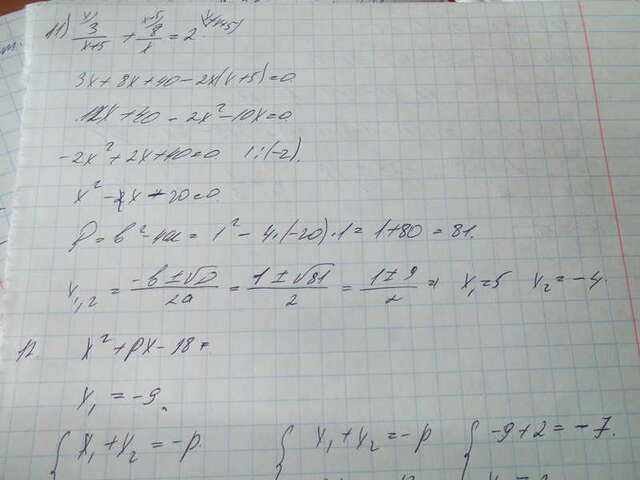 11) 3/(x+5) + 8/x = 2
3x + 8x + 40 - 2x(x+5) = 0
12x + 40 - 2x² - 10x = 0
-2x² + 2x + 40 = 0 | : (-2)
x² - x - 20 = 0
D = b² - 4ac = 1² - 4·(-20)·1 = 1 + 80 = 81.
x₁,₂ = (-b ± √D)/2a = (1 ± √81)/2 = (1 ± 9)/2 = x₁ = 5 x₂ = -4.
12 x² + px - 18 =
x₁ = -9.
{ x₁ + x₂ = -p. { x₁ + x₂ = -p { -9 + 2 = -7.